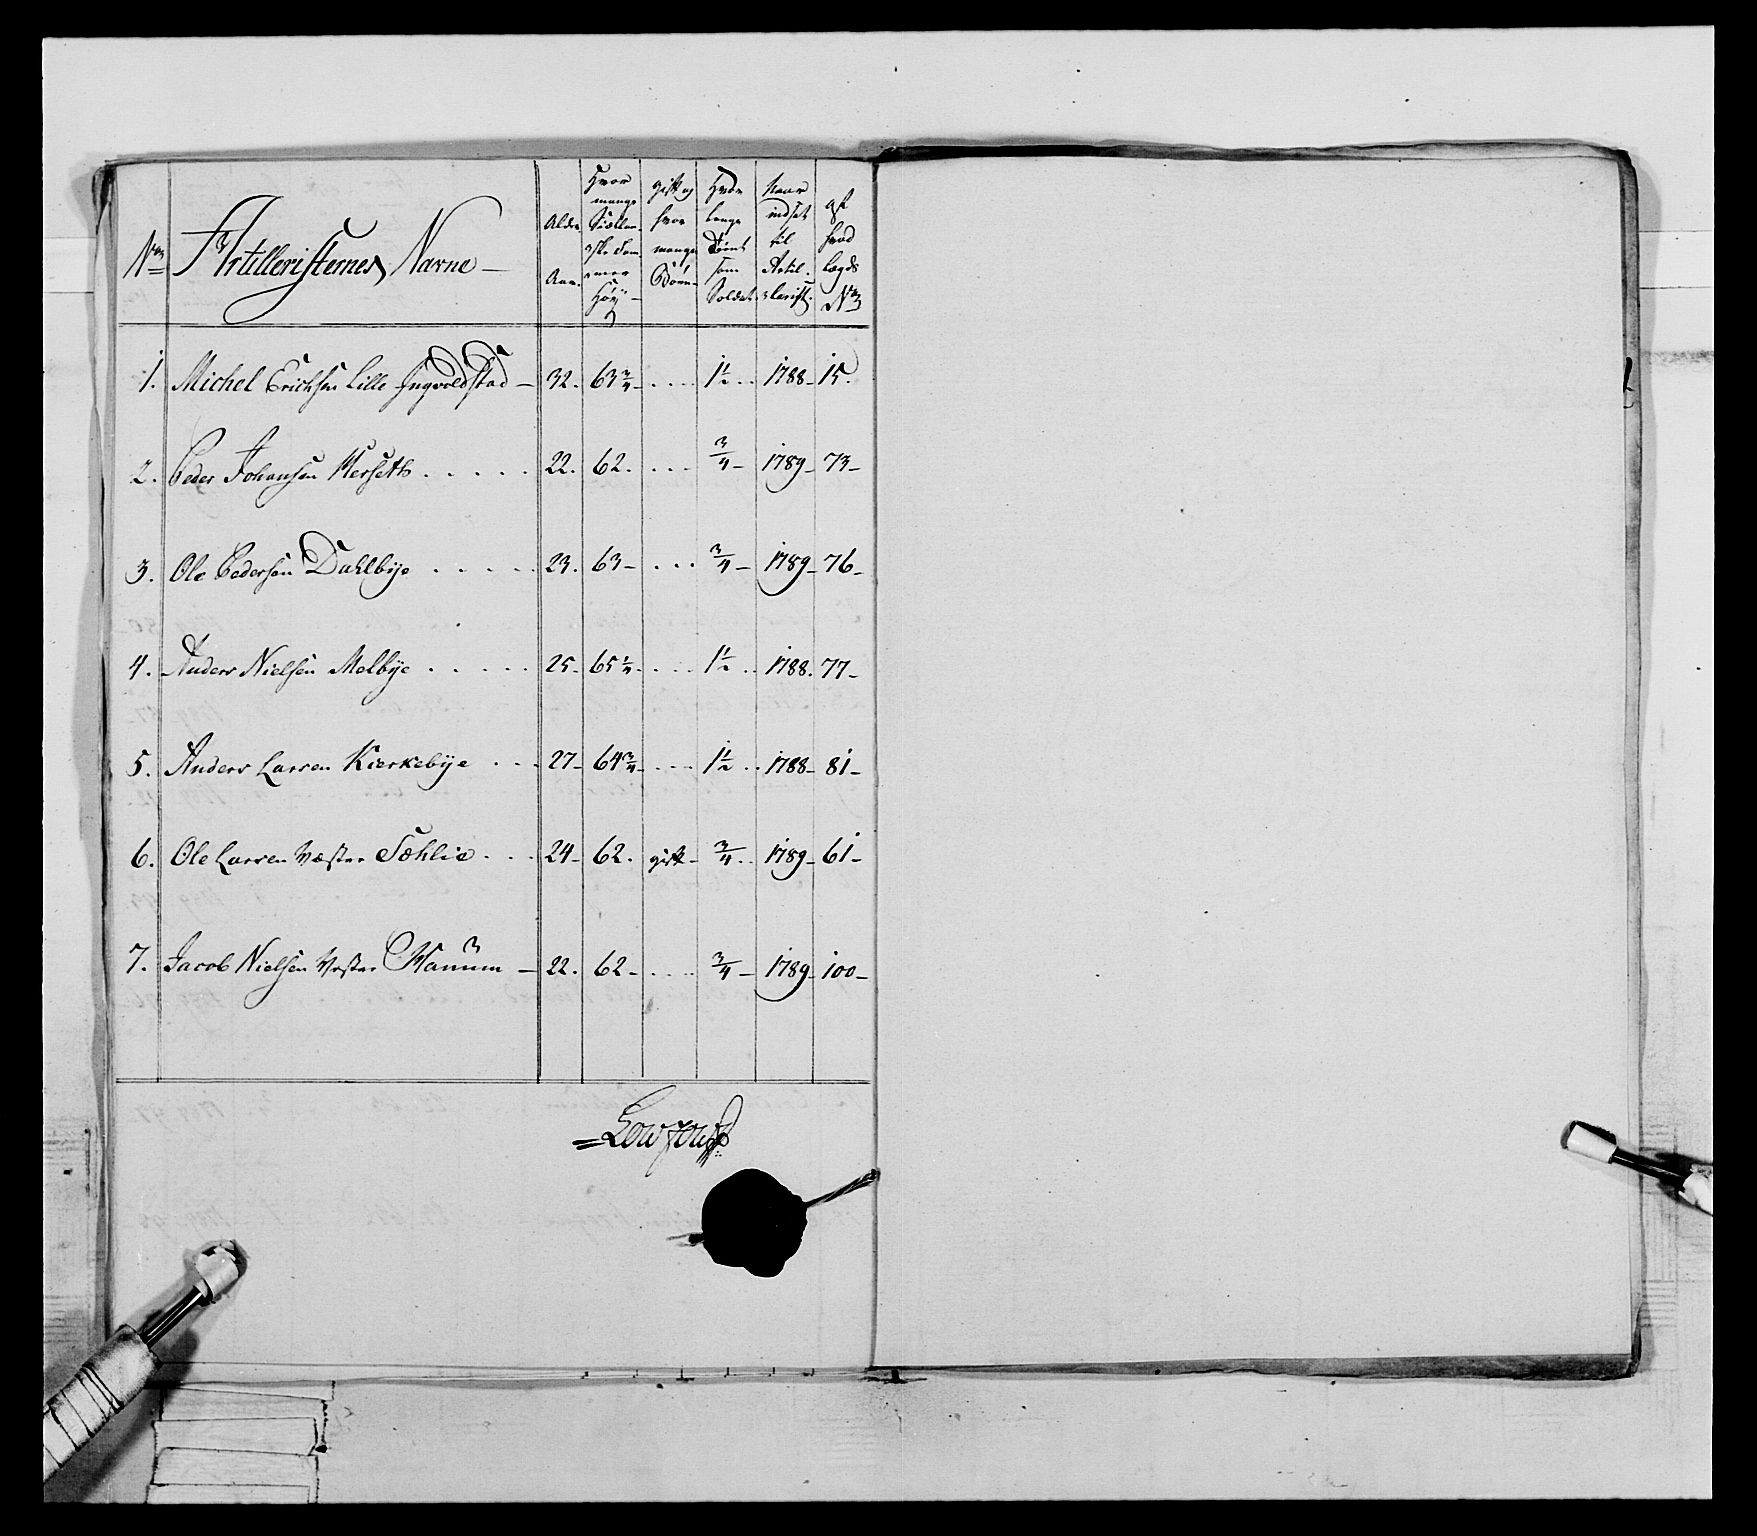 No
Artilleristernes Navne –
Alder
Aar.
Hvor
mange
Siællan-
dske Tom-
mer
Høy –
gift og
hvor
mange
Børn –
Hvor
længe
Tient
som
Soldat
Naar
indsat
til
Artil-
lerist.
af
hvad
Lægds
No
1. Michel Erichsen Lille Ingvoldstad – 32. 63 3/4 – . . . . 1 1/2 . . 1788 – 15.
2. Peder Johansen Hersett . . . . . 22. 62. . . . 3/4 – 1789 – 73 –
3. Ole Pedersen Dahlbye . . . . . 23. 63 – . . . 3/4 – 1789 – 76 –
4. Anders Nielsen Melbye . . . . . 25 – 65 1/4 . . . . 1 1/2 . . 1788. 77 –
5. Anders Larsen Kierkebye . . . 27 – 64 3/4 . . . . 1 1/2 . . 1788 – 81 –
6. Ole Larsen Vester Sæhlie . . . 24 – 62. gift – 3/4 . . 1789 – 61 –
7. Jacob Nielsen Vester Hanum – 22. 62 – . . . . 3/4 – 1789 – 100 –